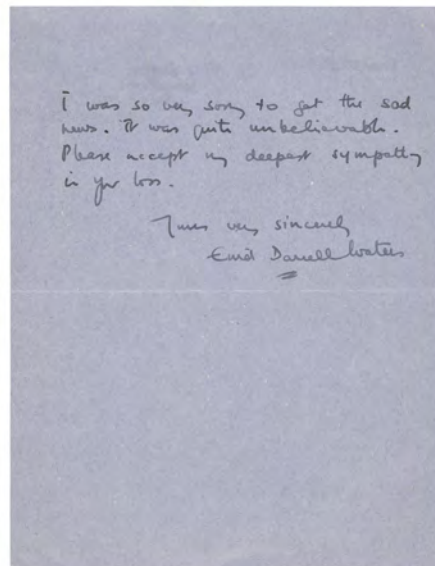 I was so very sorry to get the sad
news. It was quite unbelievable.
Please accept my deepest sympathy
in your loss.
Yours very sincerely
Enid Darrell Waters